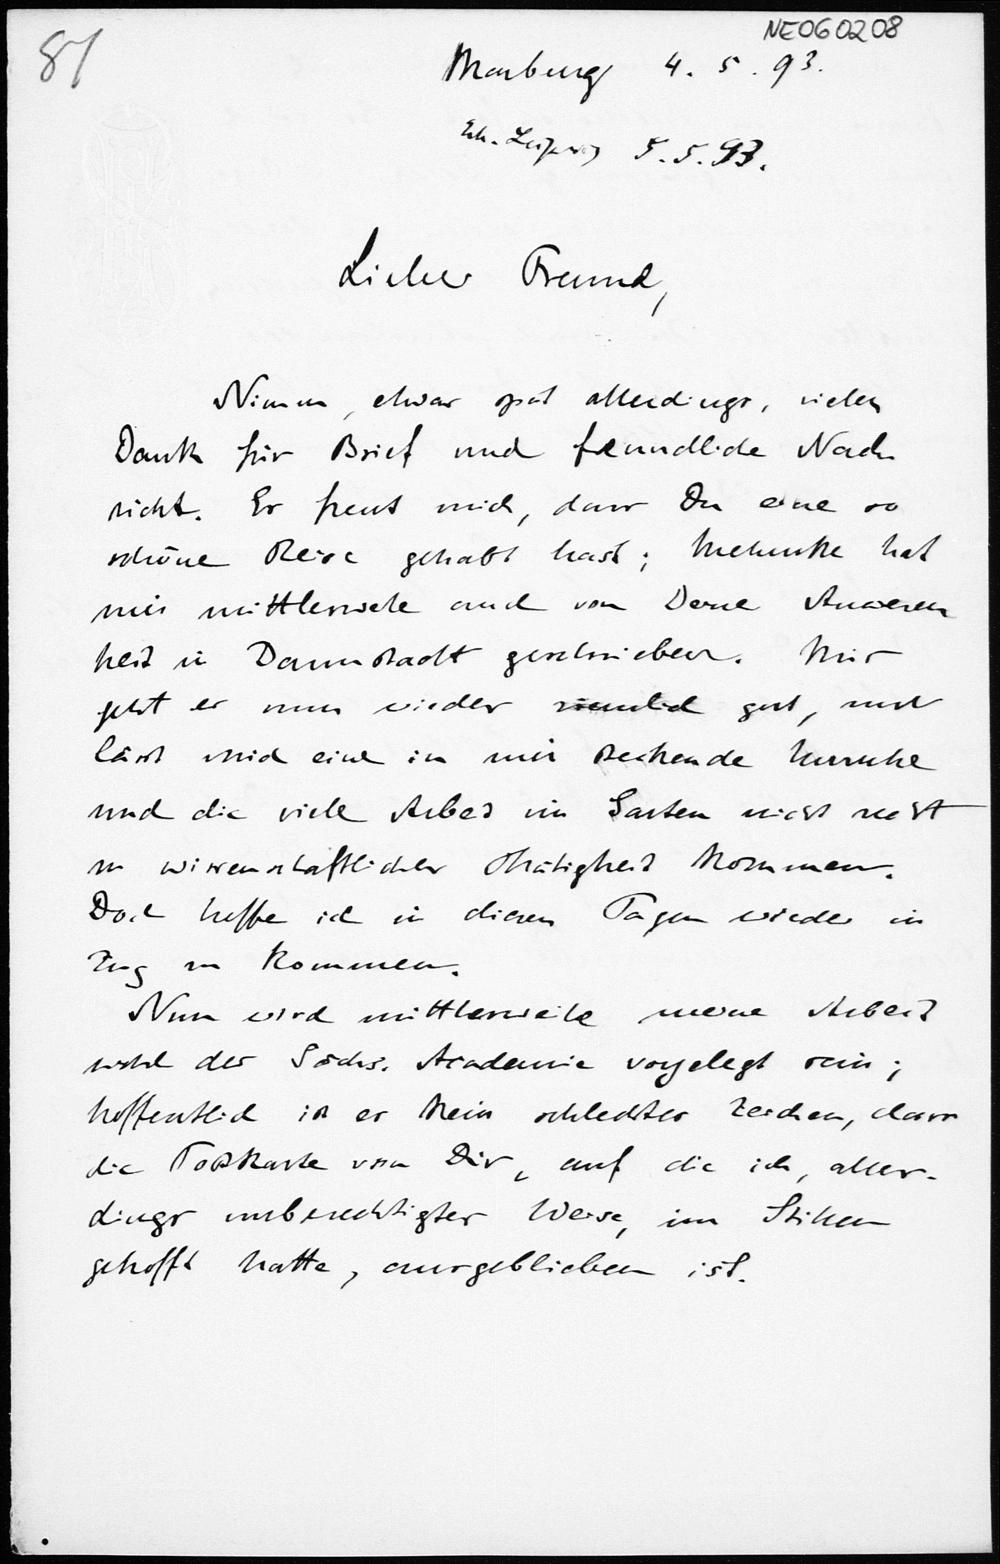 NE060208
87
Marburg 4. 5. 93.
Erh. Leipzig 5. 5. 93.
Lieber Freund,
Nimm, etwas spät allerdings, vielen
Dank für Brief und freundliche Nach
richt. Es freut mich, dass Du eine so
schöne Reise gehabt hast; Mehmke hat
mir mittlerweile auch von Deine Anwesen
heit in Darmstadt geschrieben. Mir
geht es nun wieder ziemlich gut, nur
lässt mich eine in mir steckende Unruhe
und die viele Arbeit im Garten nicht recht
zu wissenschaftlicher Thätigkeit kommen.
Doch hoffe ich in diesen Tagen wieder in
Zug zu kommen.
Nun wird mittlerweile meine Arbeit
wohl der Sächs. Academie vorgelegt sein;
hoffentlich ist es kein schlechtes Zeichen, dass
die Postkarte von Dir, auf die ich, aller-
dings unberechtigter Weise, im Stillen
gehofft hatte, ausgeblieben ist.